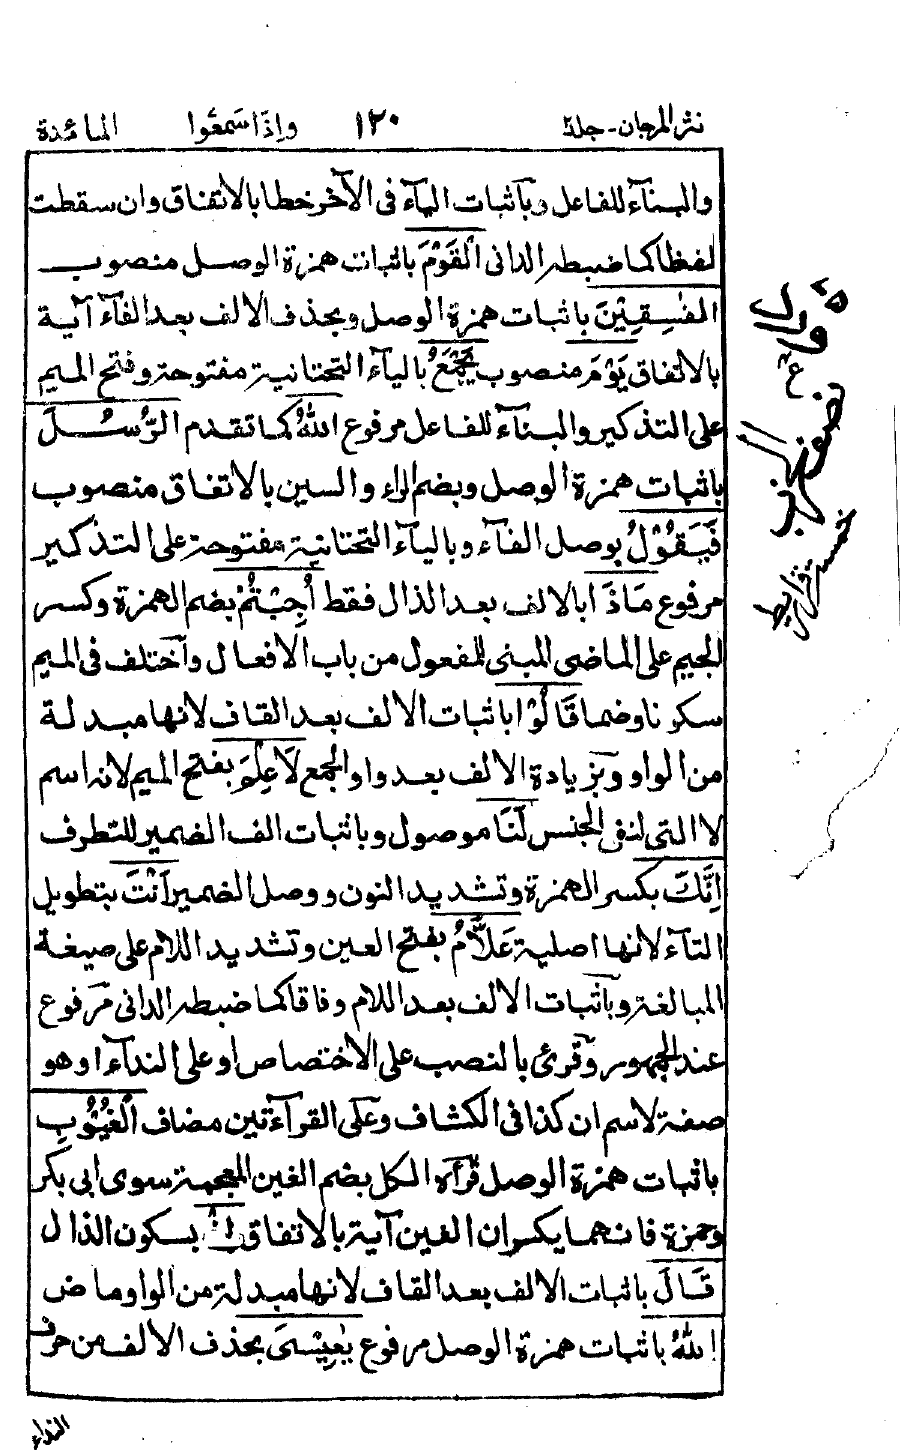 نثر المرجان - جلد ٢
١٢٠
واذا سمعوا
المائدة
والبناء للفاعل وباثبات الياء فى الآخر خطا بالاتفاق وان سقطت
لفظا كما ضبطه الدانى الْقَوْمَ باثبات همزة الوصل منصوب
الْفٰسِقِيْنَ باثبات همزة الوصل وبحذف الالف بعد الفاء آية
بالاتفاق يَوْمَ منصوب يَجْمَعُ بالياء التحتانية مفتوحة وفتح الميم
على التذكير والبناء للفاعل مرفوع اللهُ كما تقدم الرُّسُلَ
باثبات همزة الوصل وبضم الراء والسين بالاتفاق منصوب
فَيَقُوْلُ بوصل الفاء وبالياء التحتانية مفتوحة على التذكير
مرفوع مَاذَا بالالف بعد الذال فقط اُجِبْتُمْ بضم الهمزة وكسر
الجيم على الماضى المبنى للمفعول من باب الافعال واختلف فى الميم
سكونا وضما قَالُوْا باثبات الالف بعد القاف لانها مبدلة
من الواو وبزيادة الالف بعد واو الجمع لَا عِلْمَ بفتح الميم لانه اسم
لا التى لنفى الجنس لَنَا موصول وباثبات الف الضمير للتطرف
اِنَّكَ بكسر الهمزة وتشديد النون ووصل الضمير اَنْتَ بتطويل
التاء لانها اصلية عَلَّامُ بفتح العين وتشديد اللام على صيغة
المبالغة وباثبات الالف بعد اللام وفاقا كما ضبطه الدانى مرفوع
عند الجمهور وقرئ بالنصب على الاختصاص او على النداء او هو
صفة لاسم ان كذا فى الكشاف وعلى القراءتين مضاف الْغُيُوْبِ
باثبات همزة الوصل قرأه الكل بضم الغين المعجمة سوى ابى بكر
وحمزة فانهما يكسران الغين آية بالاتفاق اِذْ بسكون الذال
قَالَ باثبات الالف بعد القاف لانها مبدلة من الواو ماض
اللهُ باثبات همزة الوصل مرفوع يٰعِيْسَى بحذف الالف من حرف
النداء